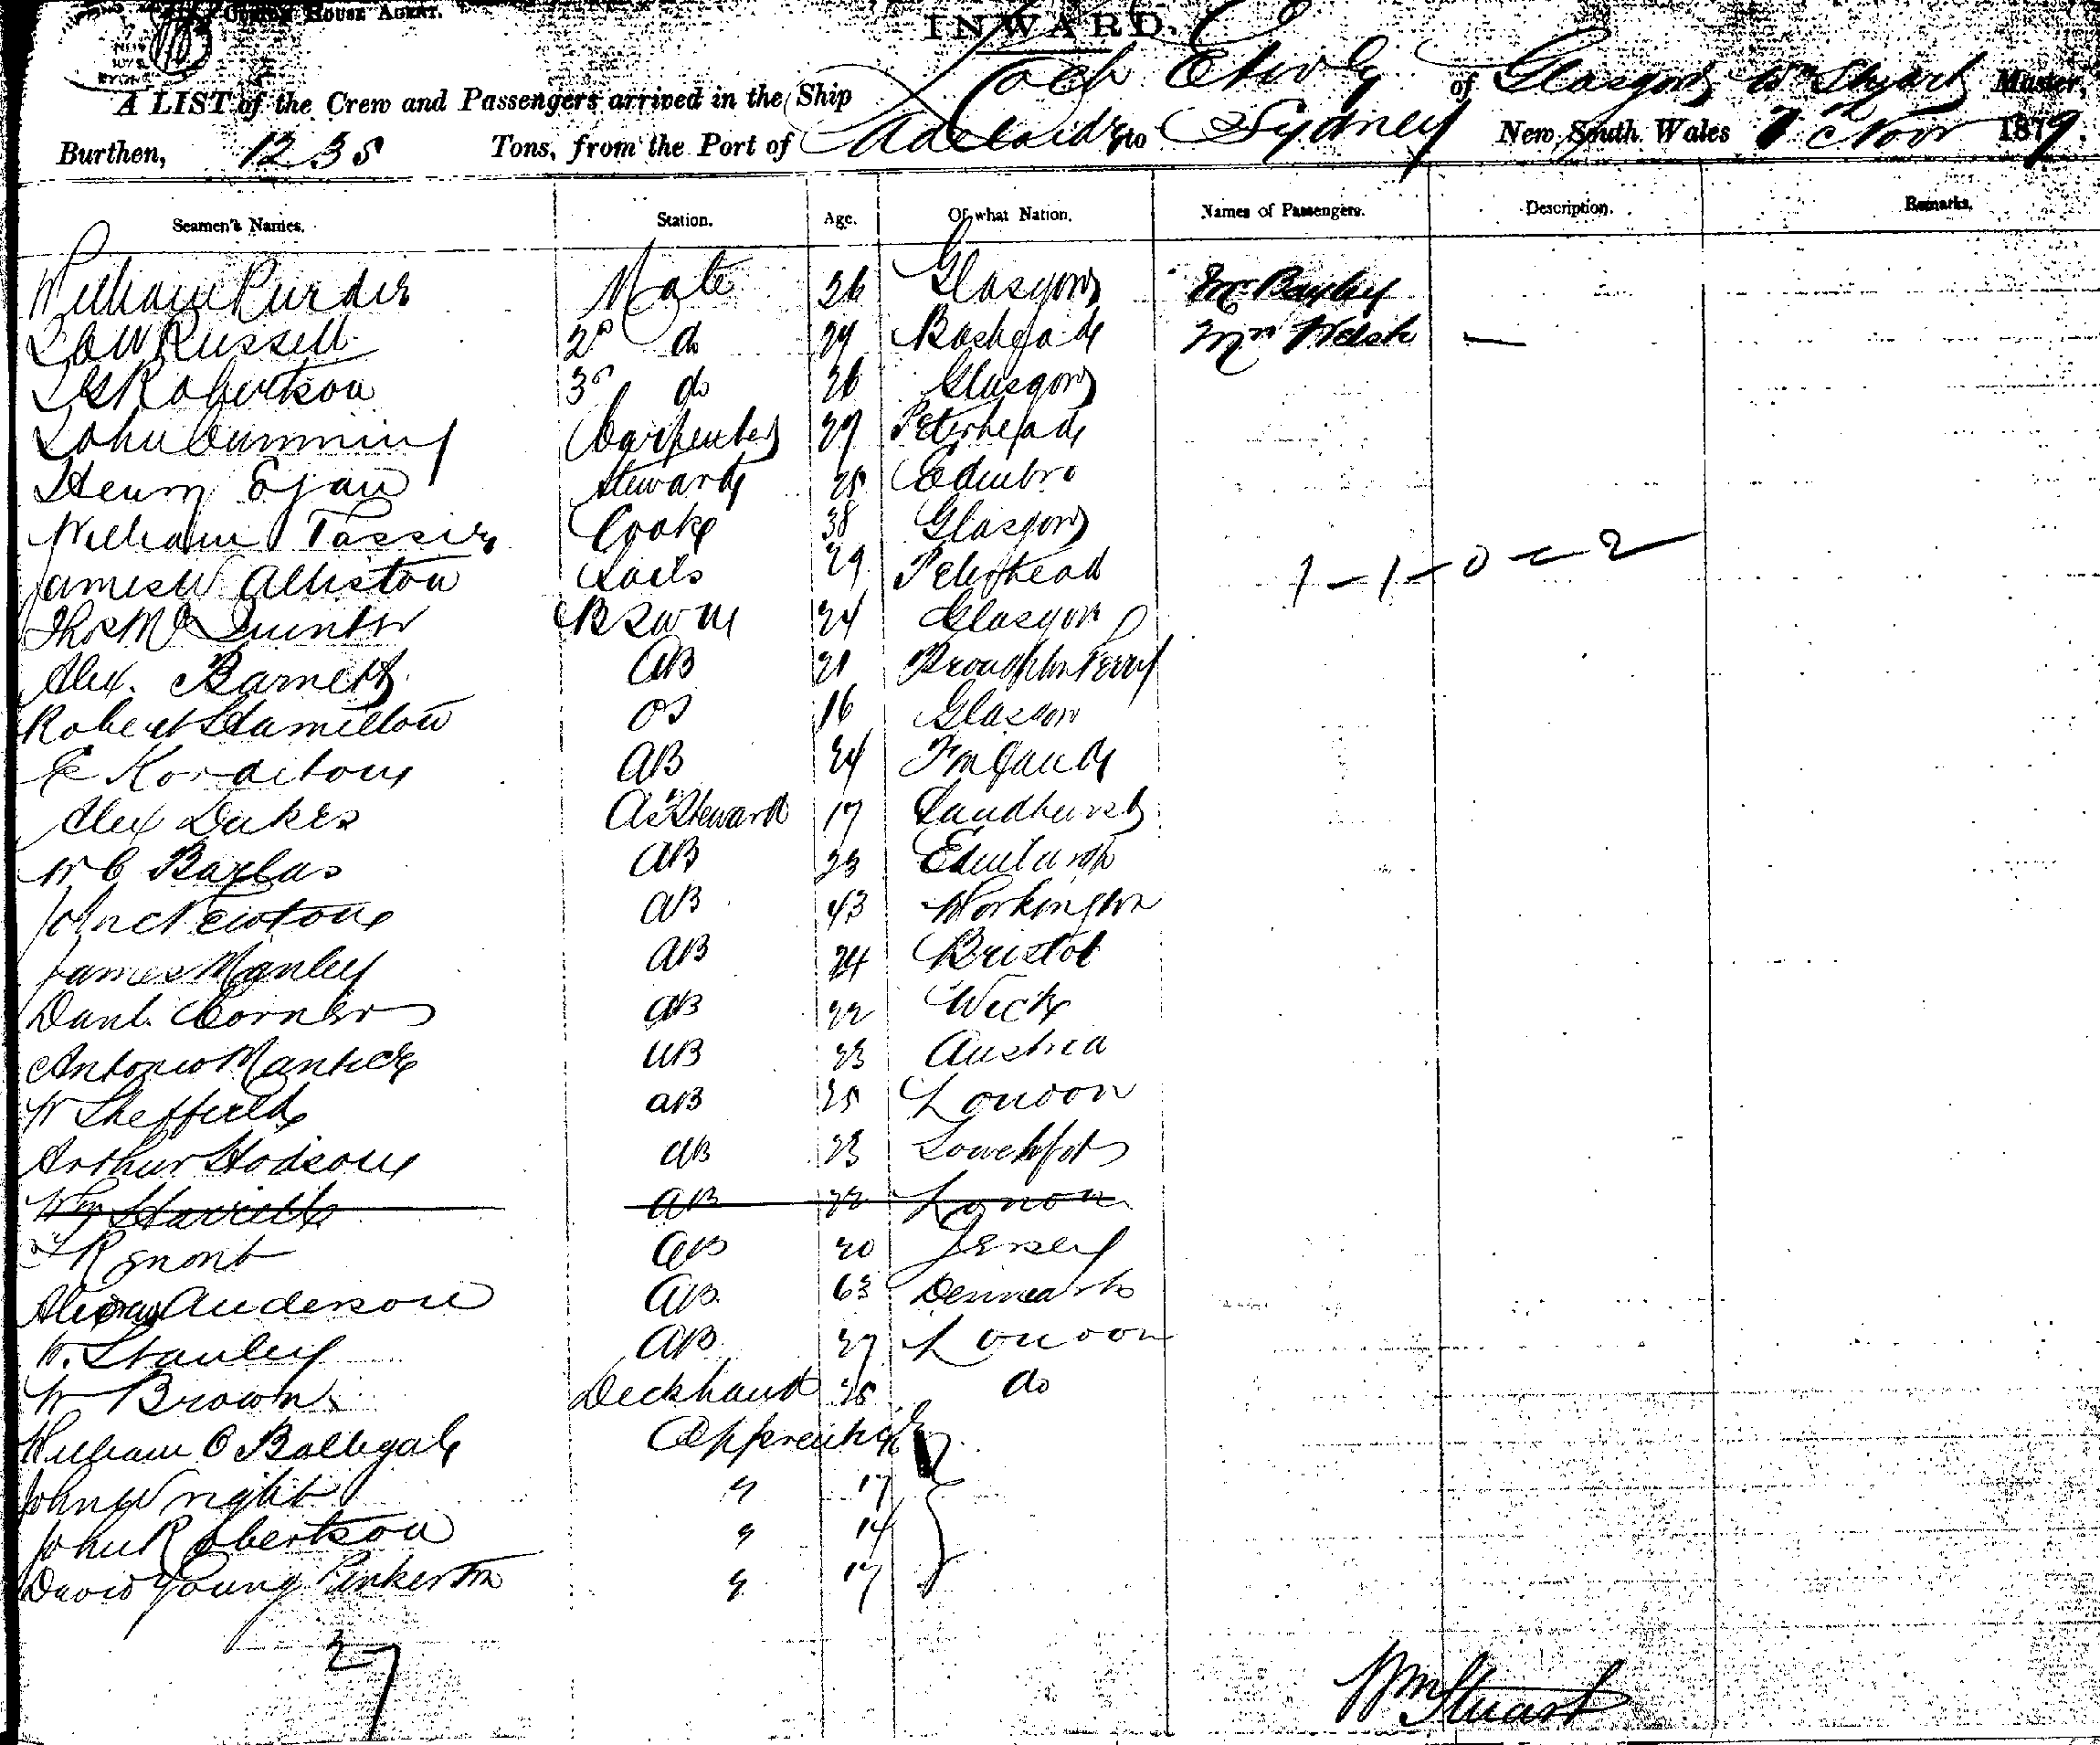 CUSTOM HOUSE AGENT.
INWARD.
A LIST of the Crew and Passengers arrived in the Ship Loch Etive of Glasgow Wm Stuart Master,
Burthen, 1235 Tons, from the Port of Adelaide to Sydney New South Wales 7th Novr 1879.
Seamen's Names. Station. Age. Of what Nation. Names of Passengers. Description. Remarks.
William Purdie Mate 26 Glasgow Mr Bayley
Russell 2d do 29 Mrs Welsh —
Robertson 3d do 26 Glasgow
John Cumming Carpenter 29 Peterhead
Henry Egan Steward 25 Edinbro
William Tassie Cook 38 Glasgow
James W Alliston Sails 29 Peterhead 1-1-0-2
Thos Mc Quintor BSWN 24 Glasgow
Alex. Barnett AB 21 Broughton Ferry
Robert Hamilton OS 16 Glasgow
AB 24 Finland
Alex Dukes As Steward 17 Sandhurst
W C Barlas AB 23 Edinburgh
John Newton AB 43 Workington
James Manley AB 24 Bristol
Danl. Corner AB 22 Wick
Antonio AB 23 Austria
W Sheffield AB 25 London
Arthur Hodson AB 23 Lowestoft
Wm AB 22 London
AB 20 Jersey
Anderson AB 63 Denmark
W. Stanley AB 27 London
W Brown Deckhand 25 do
William O Apprentice
John Wright " 17
John Robertson " 14
David Young Pinkerton " 17
27
Wm Stuart